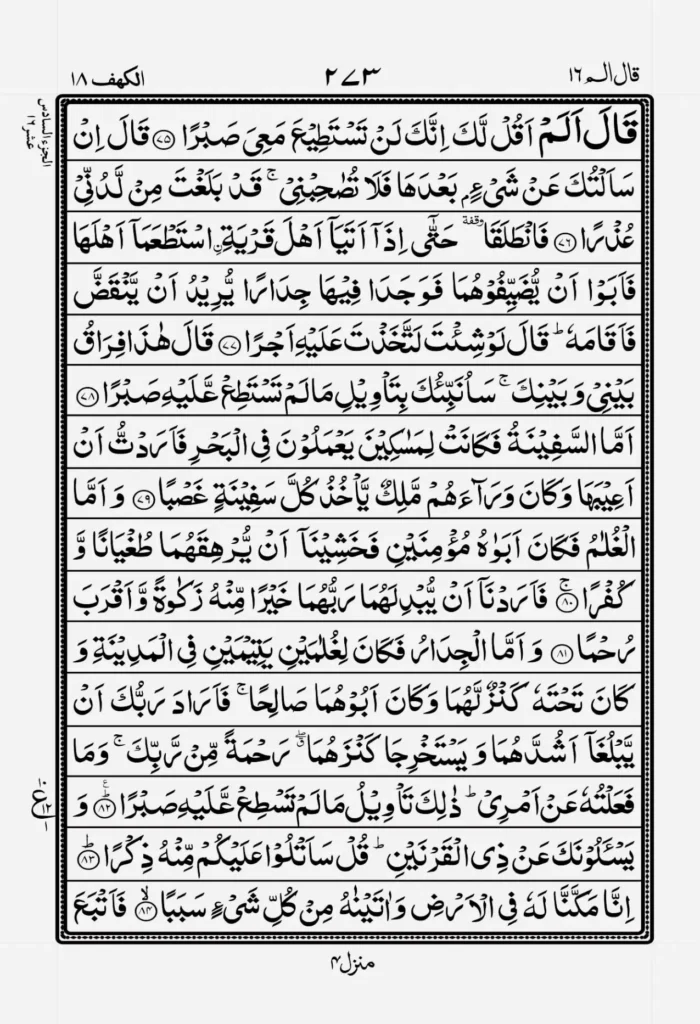 قال الم ١٦
٢٧٣
الكهف ١٨
الجزء السادس عشر ١٦
قَالَ اَلَمْ اَقُلْ لَّكَ اِنَّكَ لَنْ تَسْتَطِيْعَ مَعِيَ صَبْرًا ﴿٧٥﴾ قَالَ اِنْ
سَاَلْتُكَ عَنْ شَيْءٍۭ بَعْدَهَا فَلَا تُصٰحِبْنِيْ ۚ قَدْ بَلَغْتَ مِنْ لَّدُنِّيْ
عُذْرًا ﴿٧٦﴾ فَانْطَلَقَا وقفة حَتّٰۤى اِذَاۤ اَتَيَاۤ اَهْلَ قَرْيَةِ ۟اسْتَطْعَمَاۤ اَهْلَهَا
فَاَبَوْا اَنْ يُّضَيِّفُوْهُمَا فَوَجَدَا فِيْهَا جِدَارًا يُّرِيْدُ اَنْ يَّنْقَضَّ
فَاَقَامَهٗ ؕ قَالَ لَوْ شِئْتَ لَتَّخَذْتَ عَلَيْهِ اَجْرًا ﴿٧٧﴾ قَالَ هٰذَا فِرَاقُ
بَيْنِيْ وَ بَيْنِكَ ۚ سَاُنَبِّئُكَ بِتَاْوِيْلِ مَا لَمْ تَسْتَطِعْ عَّلَيْهِ صَبْرًا ﴿٧٨﴾
اَمَّا السَّفِيْنَةُ فَكَانَتْ لِمَسٰكِيْنَ يَعْمَلُوْنَ فِي الْبَحْرِ فَاَرَدْتُّ اَنْ
اَعِيْبَهَا وَكَانَ وَرَآءَهُمْ مَّلِكٌ يَّاْخُذُ كُلَّ سَفِيْنَةٍ غَصْبًا ﴿٧٩﴾ وَ اَمَّا
الْغُلٰمُ فَكَانَ اَبَوٰهُ مُؤْمِنَيْنِ فَخَشِيْنَاۤ اَنْ يُّرْهِقَهُمَا طُغْيَانًا وَّ
كُفْرًا ۚ﴿٨٠﴾ فَاَرَدْنَاۤ اَنْ يُّبْدِلَهُمَا رَبُّهُمَا خَيْرًا مِّنْهُ زَكٰوةً وَّ اَقْرَبَ
رُحْمًا ﴿٨١﴾ وَ اَمَّا الْجِدَارُ فَكَانَ لِغُلٰمَيْنِ يَتِيْمَيْنِ فِي الْمَدِيْنَةِ وَ
كَانَ تَحْتَهٗ كَنْزٌ لَّهُمَا وَكَانَ اَبُوْهُمَا صَالِحًا ۚ فَاَرَادَ رَبُّكَ اَنْ
يَّبْلُغَاۤ اَشُدَّهُمَا وَ يَسْتَخْرِجَا كَنْزَهُمَا ۖۗ رَحْمَةً مِّنْ رَّبِّكَ ۚ وَمَا
فَعَلْتُهٗ عَنْ اَمْرِيْ ؕ ذٰلِكَ تَاْوِيْلُ مَا لَمْ تَسْطِعْ عَّلَيْهِ صَبْرًا ﴿٨٢﴾ؕ وَ
ع ١٢
يَسْـَٔلُوْنَكَ عَنْ ذِي الْقَرْنَيْنِ ؕ قُلْ سَاَتْلُوْا عَلَيْكُمْ مِّنْهُ ذِكْرًا ﴿٨٣﴾ؕ
اِنَّا مَكَّنَّا لَهٗ فِي الْاَرْضِ وَ اٰتَيْنٰهُ مِنْ كُلِّ شَيْءٍ سَبَبًا ﴿٨٤﴾ۙ فَاَتْبَعَ
منزل ٤